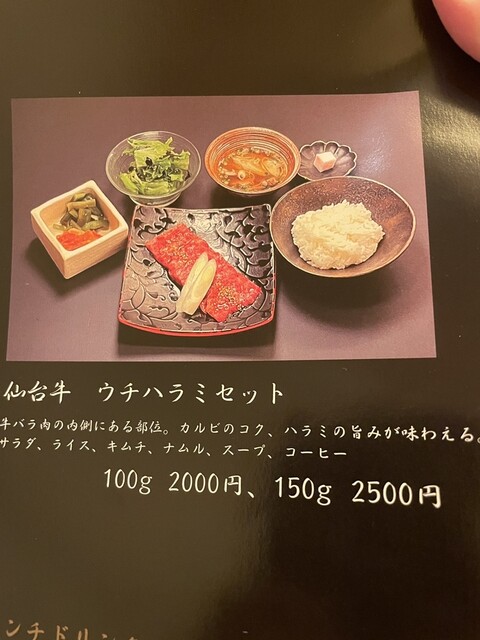 仙台牛　ウチハラミセット
牛バラ肉の内側にある部位。カルビのコク、ハラミの旨みが味わえる。
サラダ、ライス、キムチ、ナムル、スープ、コーヒー
100g 2000円、150g 2500円
ンチドリンク